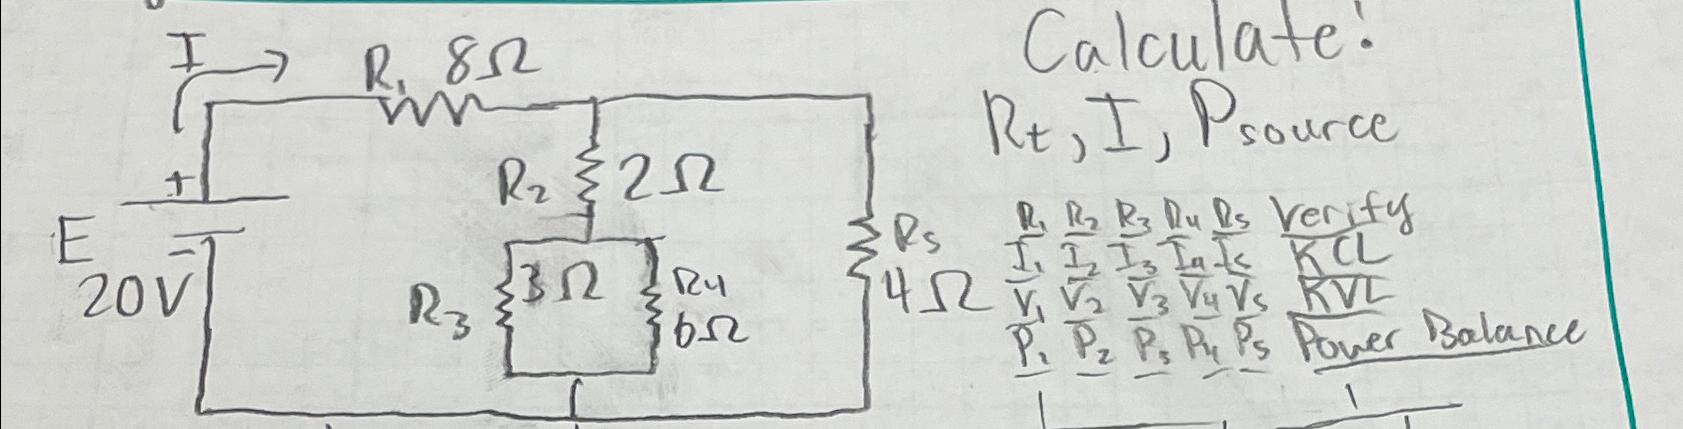 I
R1 8Ω
+
E
-
20V
R2 2Ω
3Ω
R3
R4
6Ω
R5
4Ω
Calculate:
Rt, I, Psource
R1 R2 R3 R4 R5 Verify
I1 I2 I3 I4 I5 KCL
V1 V2 V3 V4 V5 KVL
P1 P2 P3 P4 P5 Power Balance